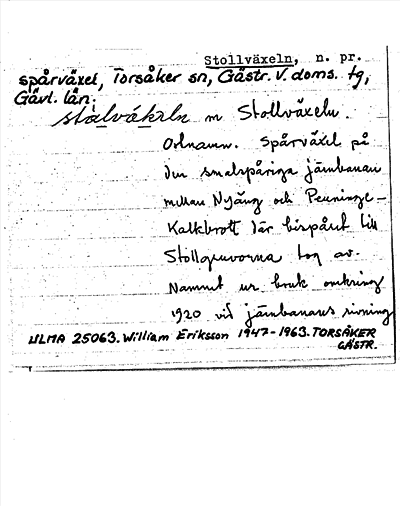 Stollväxeln, n. pr.
spårväxel, Torsåker sn, Gästr. V. doms. tg,
Gävl. län;
stålväksln m Stollväxeln.
Ortnamn. Spårväxel på
den smalspåriga järnbanan
mellan Nyäng och Penninge-
Kalkbrott där bispåret till
Stollgruvorna tog av.
Namnet ur bruk omkring
1920 vid järnbanans rivning
ULMA 25063. William Eriksson 1947-1963. TORSÅKER
GÄSTR.